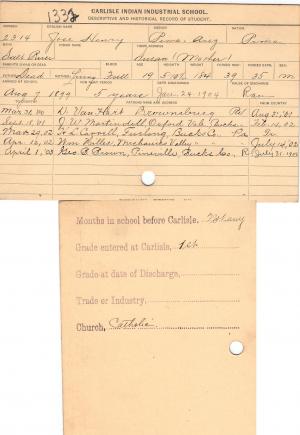 1332
CARLISLE INDIAN INDUSTRIAL SCHOOL.
DESCRIPTIVE AND HISTORICAL RECORD OF STUDENT.
2314 Jose Henry Pima Ariz Pima
Susan (Mother)
Dead Living Full 19 154 39 35 M
Aug 7 1899 5 years Jan 24-1904 Ran
D. Van Hart Brownsburg Pa Aug 31, '01
Sept. 11, 01 J. W. Martindell Oxford Vale Bucks Feb. 14, 02
Mar. 29, 02 H. L. Carrell, Furlong, Bucks Co. Pa
Apr. 16, 02 Wm Hallis, Mechanics Valley " July 14, 02
April 1, 03 Geo. B. Brown, Pineville Bucks Co. R July 31-1903
Months in school before Carlisle, Many
Grade entered at Carlisle, 1st
Grade at date of Discharge,
Trade or Industry,
Church, Catholic